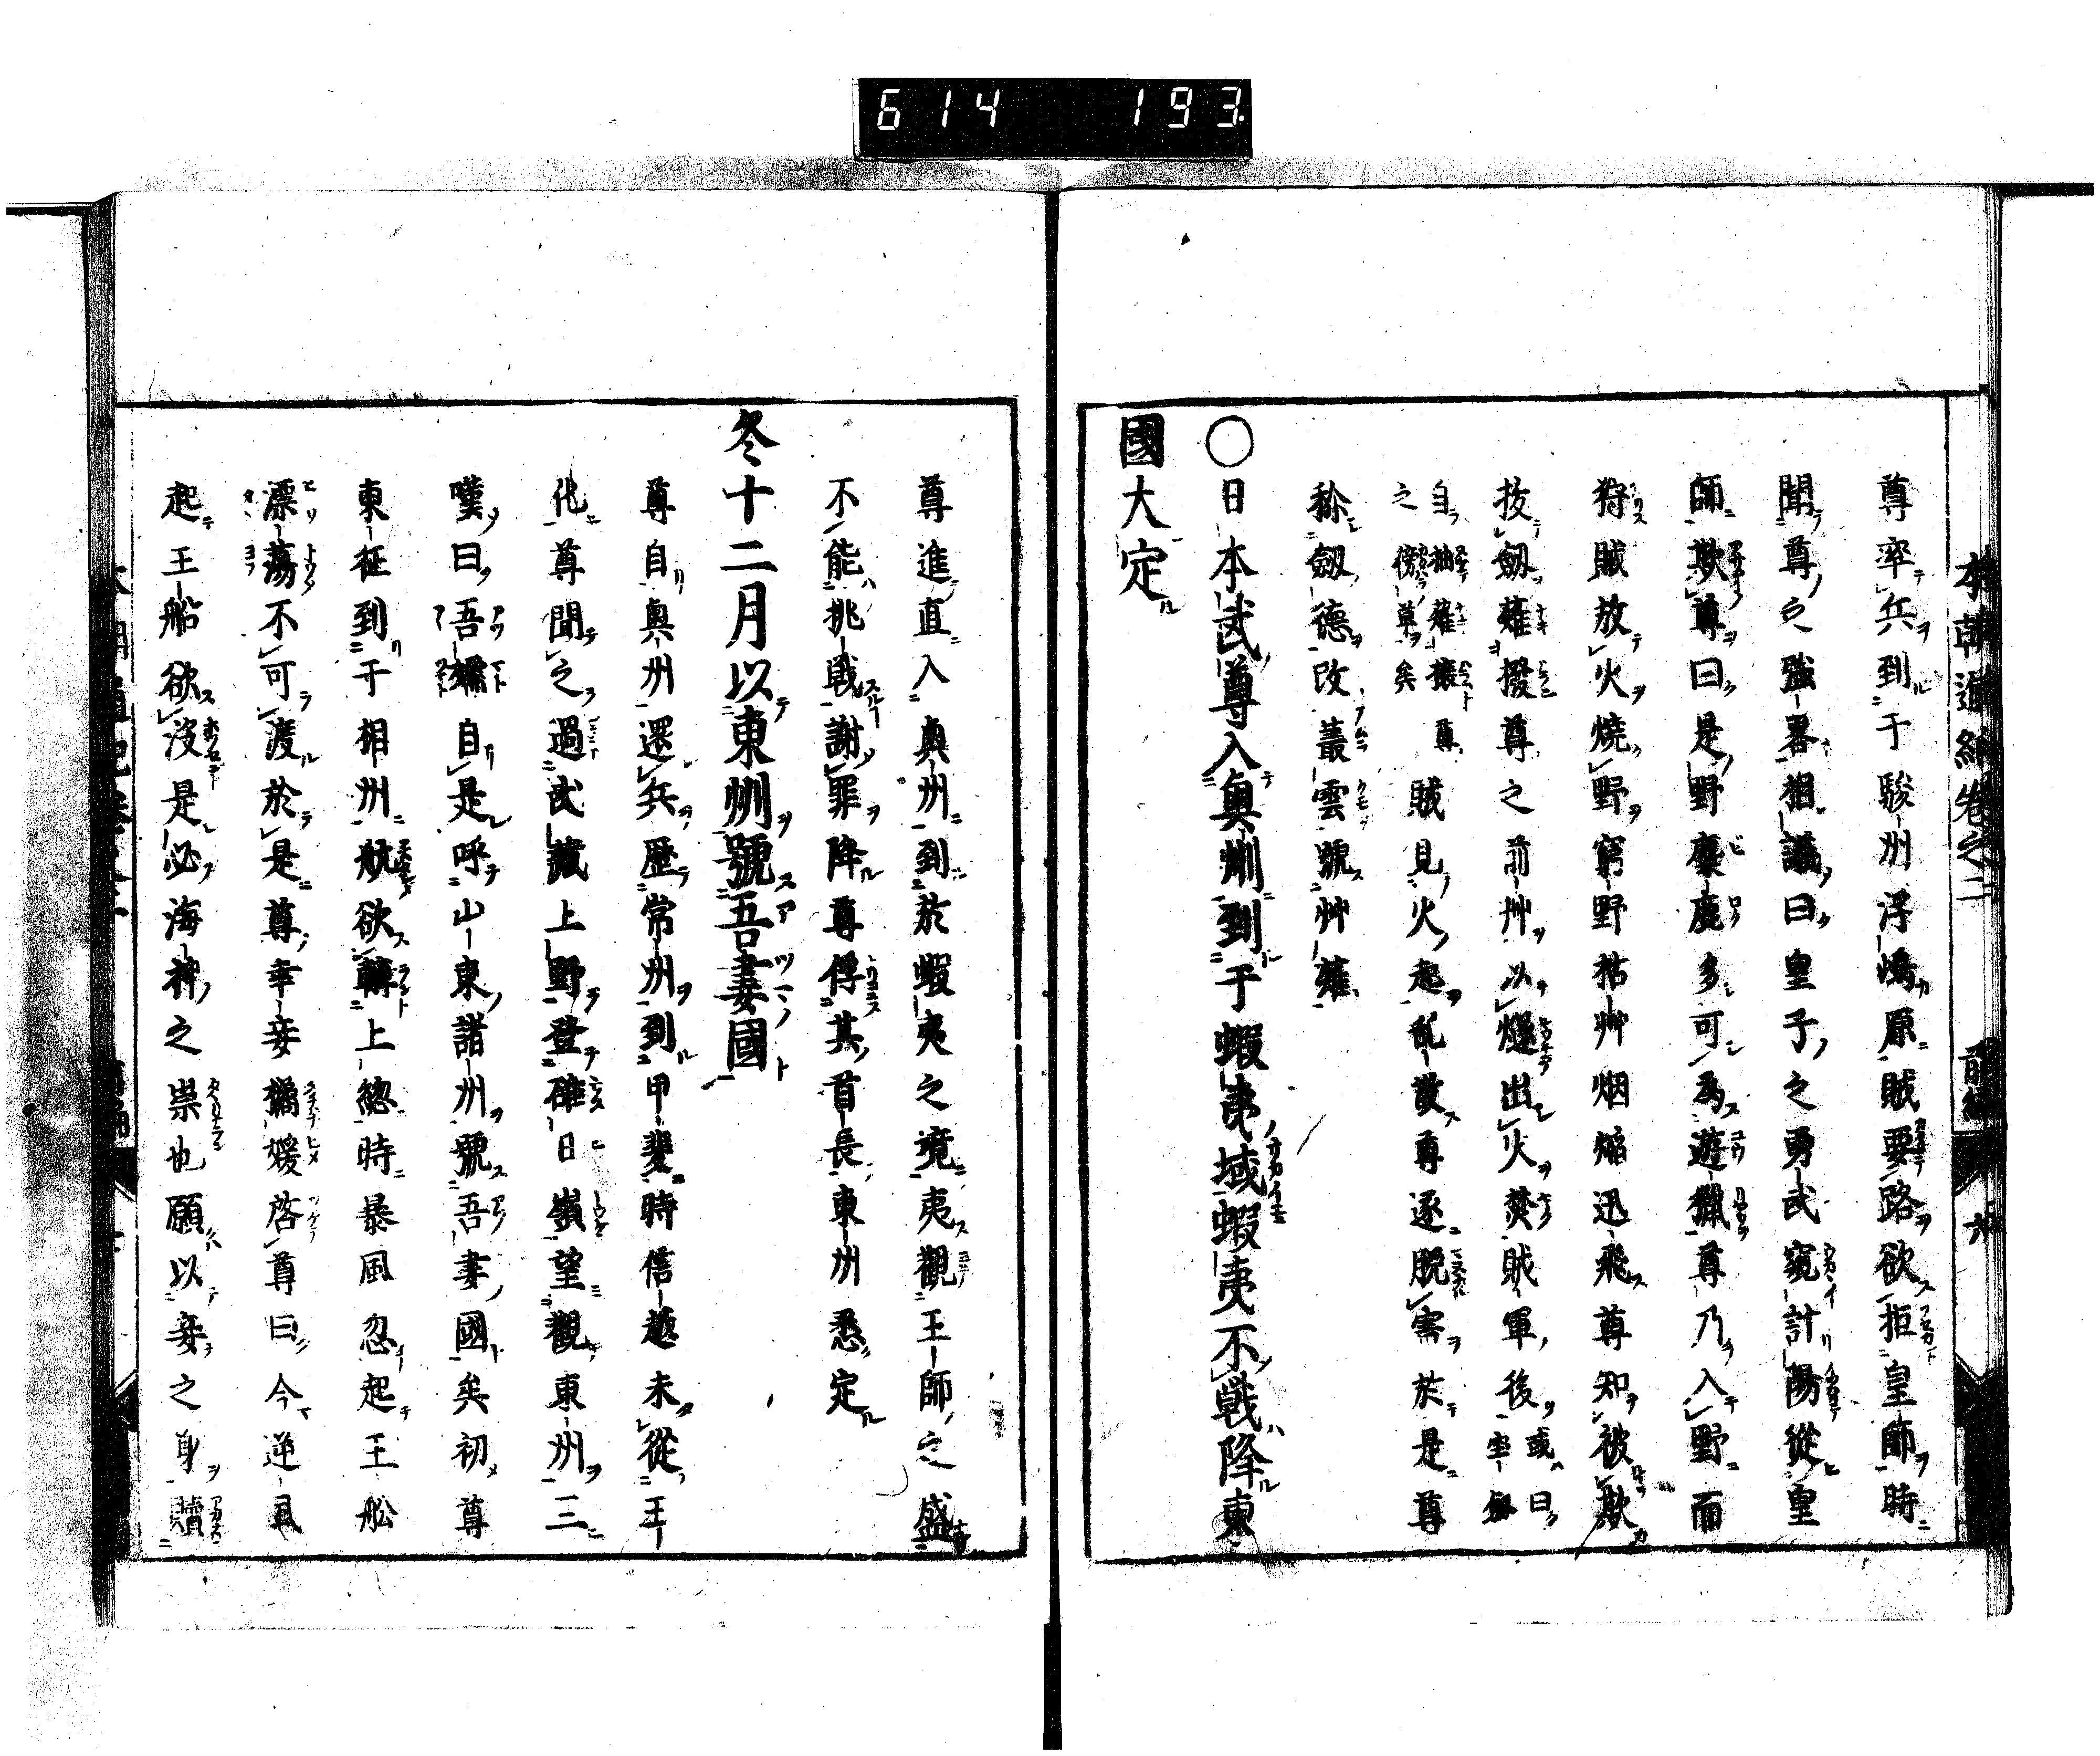 614 193
本朝通紀卷之二 前編 六
尊率兵到于駿州浮嶋原賊要路欲拒皇師時
聞尊之強畧相議曰皇子之勇武窺計陽從皇
師欺尊曰是野麋鹿多可為遊獵尊乃入野而
狩賊放火燒野窮野枯艸烟焔迅飛尊知被欺
拔劔薙撥尊之前艸以燧出火焚賊軍後或曰宝劔
自抽薙攘之傍草矣尊賊見火起乱散尊逐脫害於是尊
稱劔德改叢雲號艸薙
○日本武尊入奥州到于蝦夷域蝦夷不戰降東
國大定
尊進直入奥州到於蝦夷之境夷觀王師之盛
不能挑戰謝罪降尊俘其首長東州悉定
冬十二月以東州號吾妻國
尊自奥州還兵歷常州到甲斐時信越未從王
化尊聞之過武藏上野登碓日嶺望觀東州三
嘆曰吾嬬自是呼山東諸州號吾妻國矣初尊
東征到于相州航欲轉上總時暴風忽起王舩
漂蕩不可渡於是尊幸妾橘媛啓尊曰今逆風
起王船欲沒是必海神之祟也願以妾之身贖